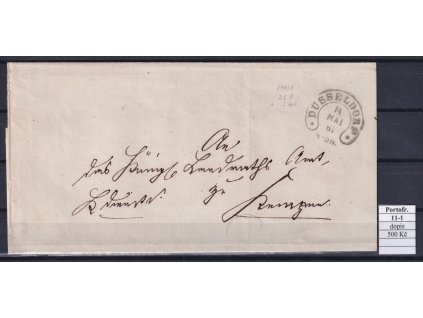 DÜSSELDORF
14
MAI
An
das Königl Landraths Amt
zu
Kempen
Portofr.
11-1
dopis
500 Kč